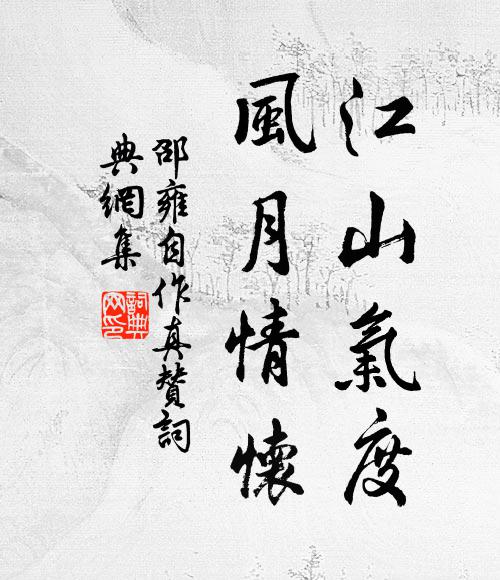 江山氣度
風月情懷
邵雍自作真贊詞
典網集
詞典
网印